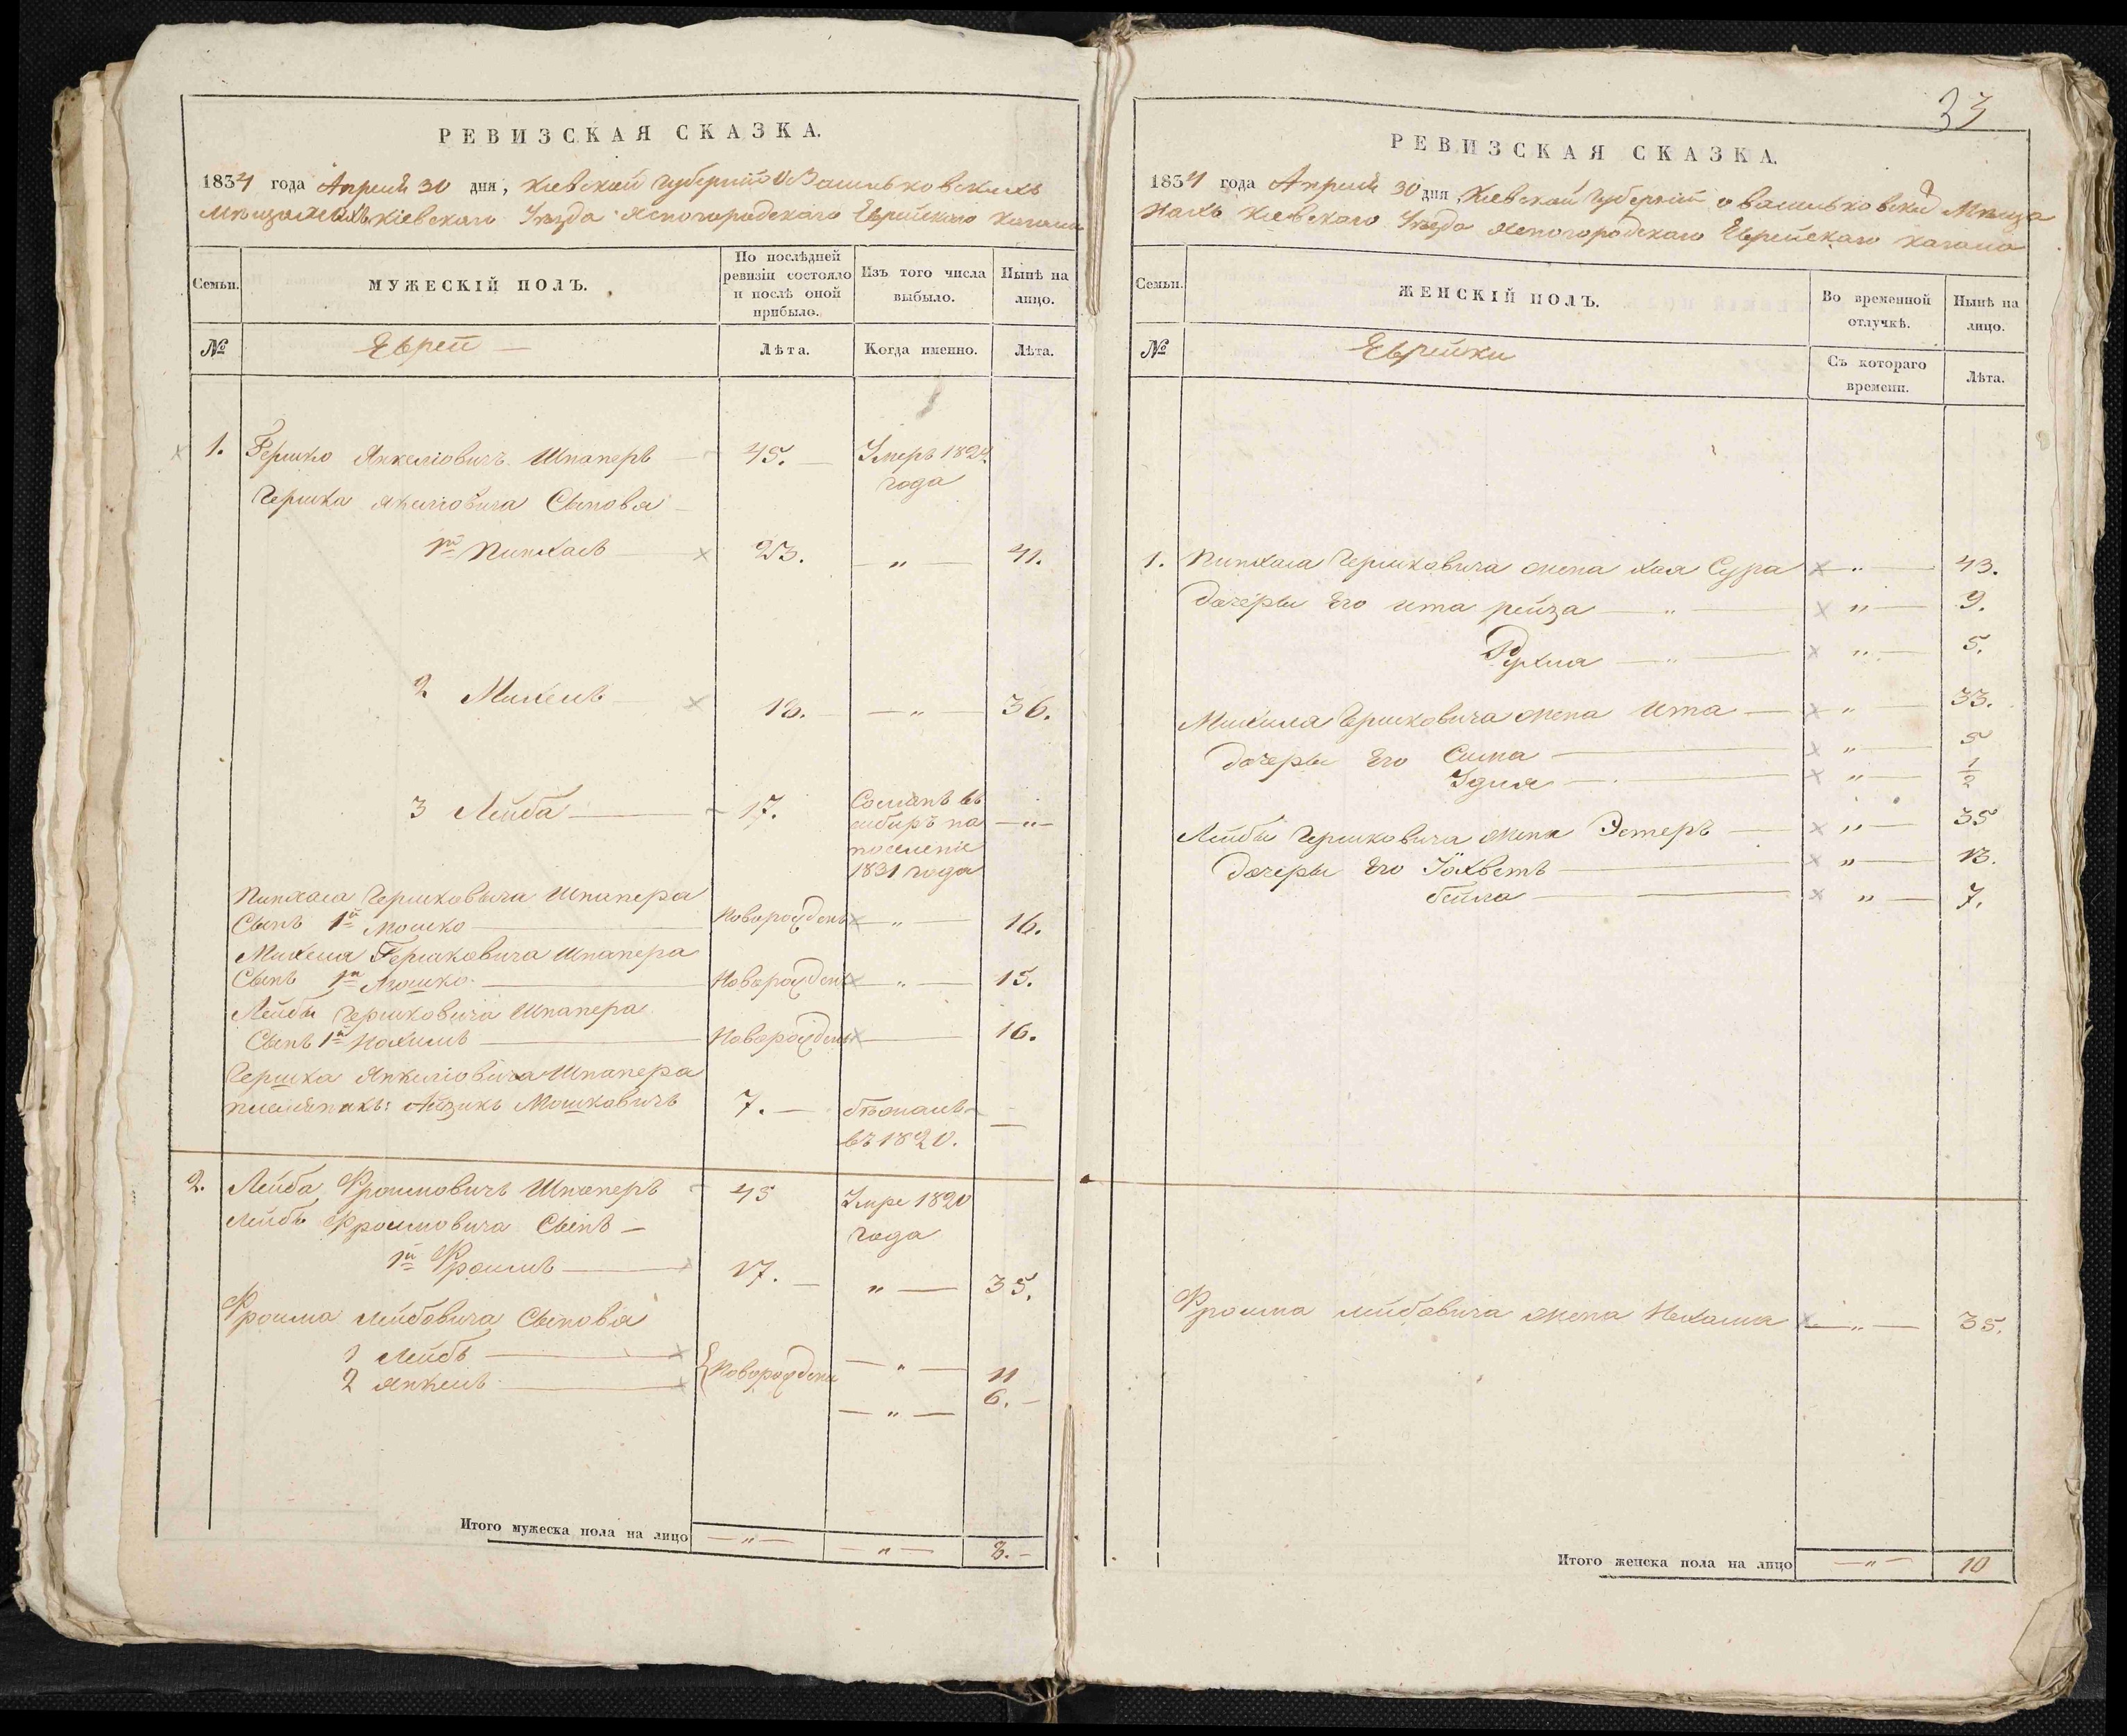 РЕВИЗСКАЯ СКАЗКА.
1834 года Апреля 30 дня, Киевской губернии о Васильковскихъ
Мѣщанахъ Кіевскаго Уѣзда Ясногородскаго Еврейскаго кагала
Семьи.
МУЖЕСКІЙ ПОЛЪ.
По послѣдней
ревизіи состояло
и послѣ оной
прибыло.
Изъ того числа
выбыло.
Нынѣ на
лицо.
№
Евреи
Лѣта.
Когда именно.
Лѣта.
1. Гершко Янкеліовичъ Шпаперъ 45. Умеръ 1824
года
Гершка Янкеліовича Сыновя
1й Пинхасъ 23. „ 41.
2 Михель 18. „ 36.
3 Лейба 17. Сосланъ въ
сибиръ на „
поселеніе
1831 года
Пинхаса Гершковича Шпапера
Сынъ 1й Мошко Новорожденъ „ 16.
Михеля Гершковича Шпапера
Сынъ 1й Мошко Новорожденъ „ 15.
Лейбы Гершковича Шпапера
Сынъ 1й Нохимъ Новорожденъ 16.
Гершка Янкеліовича Шпапера
племянникъ: Айзикъ Мошковичъ 7. бѣжалъ
въ 1820.
2. Лейба Фроимовичъ Шпаперъ 45 Умре 1820
года
Лейбы Фроимовича Сынъ
1й Фроимъ 17. „ 35.
Фроима Лейбовича Сыновя
1 Лейбъ Новорождени „ 11
2 Янкель „ 6.
Итого мужеска пола на лицо „ „ 8.
33
РЕВИЗСКАЯ СКАЗКА.
1834 года Апреля 30 дня Кіевской Губерніи о Васильковски Мѣща
нахъ Кіевскаго Уѣзда Ясногородскаго Еврейскаго кагала
Семьи.
ЖЕНСКІЙ ПОЛЪ.
Во временной
отлучкѣ.
Нынѣ на
лицо.
№
Еврейки
Съ котораго
времени.
Лѣта.
1. Пинхаса Гершковича жена Хая Сура „ 43.
дочеры Его Ита рейза „ „ 9.
Рухля „ „ 5.
Михиля Гершковича жена Ита „ 33.
дочеры Его Сима „ 5
Удля „ 1/2
Лейбы Гершковича жена Эстеръ „ 35
дочеры Его Іохветъ „ 13.
бейла „ 7.
Фроима Лейбовича жена Нехама „ 35.
Итого женска пола на лицо „ 10